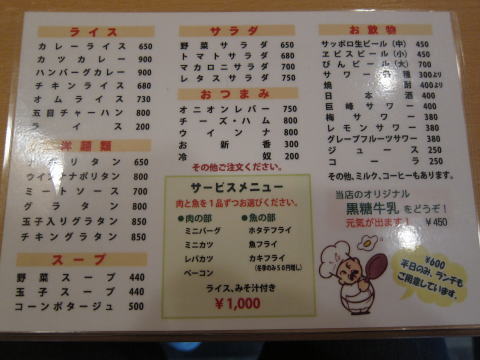 ライス
カレーライス 650
カツカレー 900
ハンバーグカレー 900
チキンライス 680
オムライス 730
五目チャーハン 800
ライス 200
洋麺類
ナポリタン 650
ウインナナポリタン 750
ミートソース 700
グラタン 700
玉子入りグラタン 850
チキングラタン 850
スープ
野菜スープ 440
玉子スープ 440
コーンポタージュ 500
サラダ
野菜サラダ 650
トマトサラダ 680
マカロニサラダ 700
レタスサラダ 750
おつまみ
オニオンレバー 750
チーズ・ハム 800
ウインナ 800
お新香 300
冷奴 200
その他ご注文ください。
サービスメニュー
肉と魚を1品ずつお選びください。
●肉の部
ミニバーグ
ミニカツ
レバカツ
ベーコン
●魚の部
ホタテフライ
魚フライ
カキフライ
(冬季のみ50円増し)
ライス、みそ汁付き
¥1,000
お飲物
サッポロ生ビール(中) 450
ヱビスビール(小) 450
びんビール(大) 700
サワー各種 300より
焼酎 400より
日本酒 400
巨峰サワー 380
梅サワー 380
レモンサワー 380
グレープフルーツサワー 380
ジュース 250
コーラ 250
その他、ミルク、コーヒーもあります。
当店のオリジナル
黒糖牛乳をどうぞ!
元気が出ます! ¥450
¥600
平日のみ、ランチも
ご用意しています。